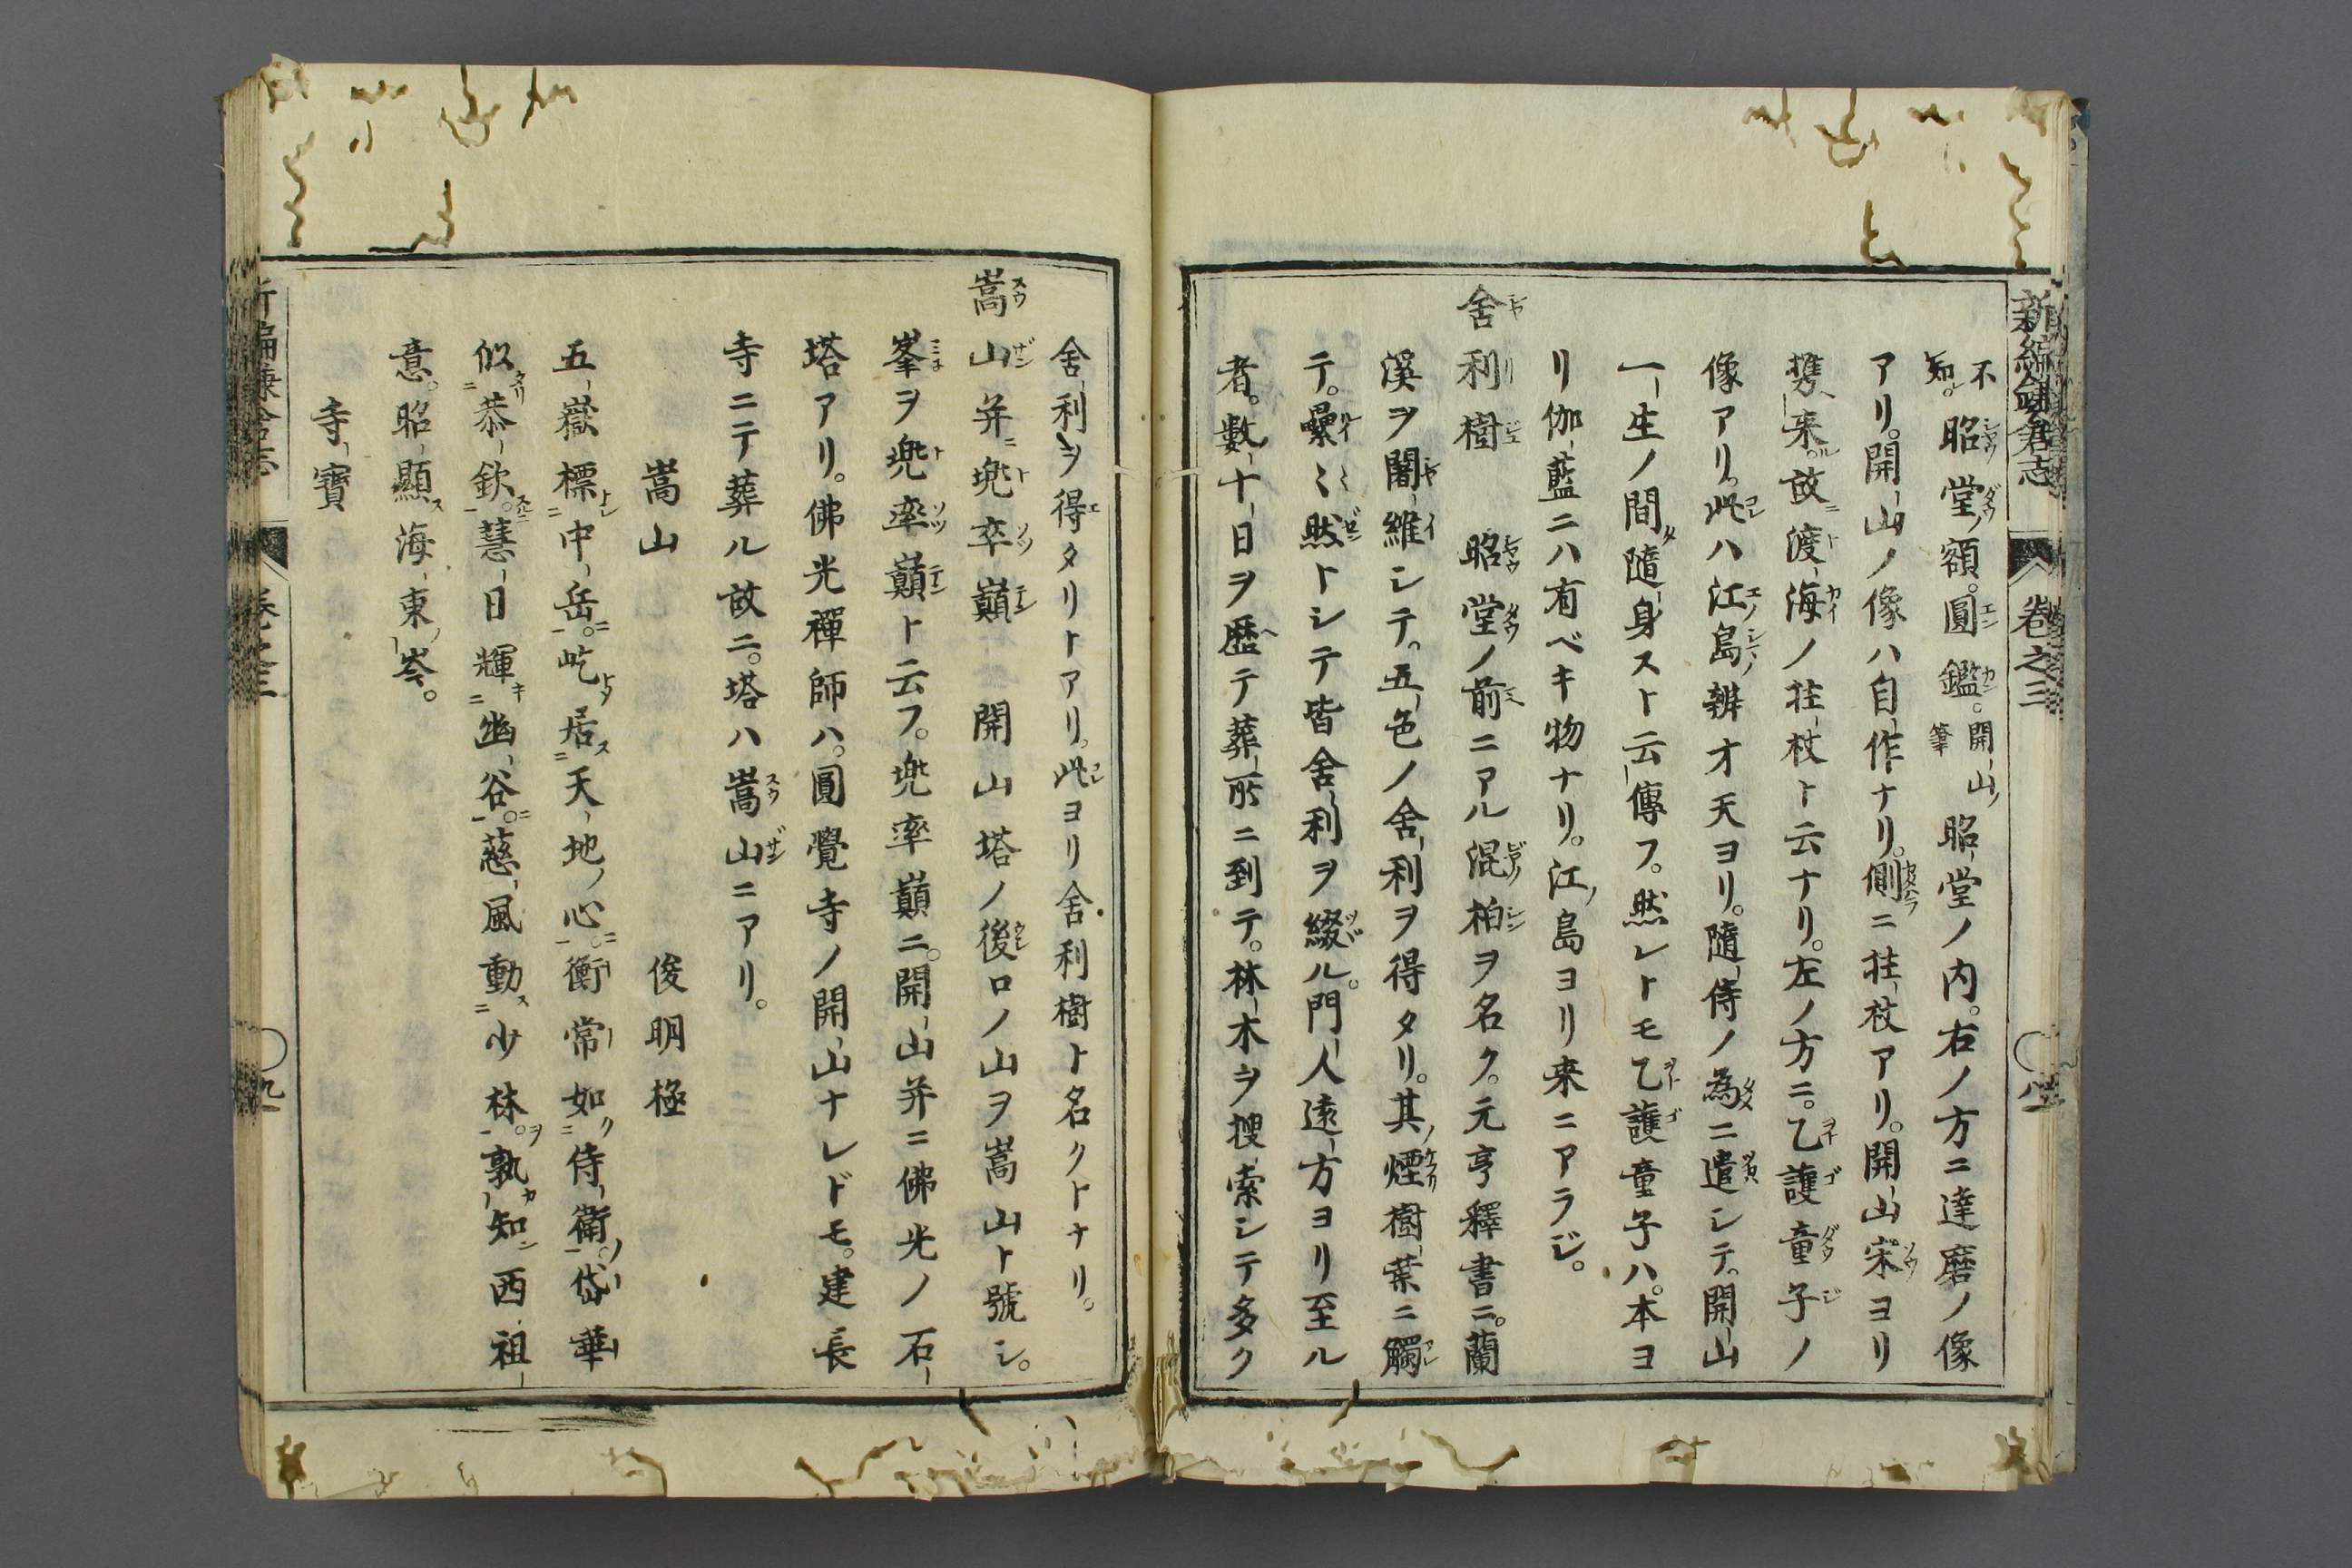 新編鎌倉志
卷之三
不知。昭堂額。圓鑑。開山ノ筆 昭堂ノ内。右ノ方ニ達磨ノ像
アリ。開山ノ像ハ自作ナリ。側ニ拄杖アリ。開山宋ヨリ
携來ル。故ニ渡海ノ拄杖ト云ナリ。左ノ方ニ。乙護童子ノ
像アリ。此ハ江島辨才天ヨリ。隨侍ノ為ニ遣シテ。開山
一生ノ間隨身スト云傳フ。然レトモ乙護童子ハ。本ヨ
リ伽藍ニハ有ベキ物ナリ。江ノ島ヨリ来ニアラジ。
舍利樹 昭堂ノ前ニアル混柏ヲ名ク。元亨釋書ニ。蘭
溪ヲ闍維シテ。五色ノ舍利ヲ得タリ。其ノ煙樹葉ニ觸
テ。纍〻然トシテ皆舍利ヲ綴ル。門人遠方ヨリ至ル
者。數十日ヲ歴テ葬所ニ到テ。林木ヲ搜索シテ多ク
舍利ヲ得タリトアリ。此ヨリ舍利樹ト名クトナリ。
嵩山并ニ兜卒巓 開山塔ノ後ロノ山ヲ嵩山ト號シ。
峯ヲ兜率巓ト云フ。兜率巓ニ。開山并ニ佛光ノ石
塔アリ。佛光禪師ハ。圓覺寺ノ開山ナレドモ。建長
寺ニテ葬ル故ニ。塔ハ嵩山ニアリ。
嵩山 俊明極
五嶽標中岳。屹居天地ノ心衡常如侍衛。岱華
似恭欽。慧日輝幽谷。慈風動少林。孰知西祖
意。昭顯海東岑。
寺寶
卷之三